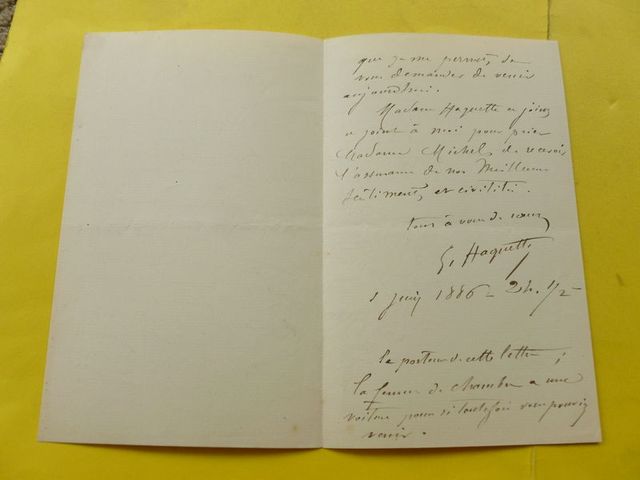 que je me permets de
vous demander de venir
aujourd'hui.
Madame Haquette se joint
se joint à moi pour prier
Madame Michel, de recevoir
l'assurance de nos Meilleurs
sentiments, et civilités.
tout à vous de cœur
G. Haquette
1 juin 1886 - 2h. 1/2 -
le porteur de cette lettre,
la femme de chambre a une
voiture pour si toutefois vous pouviez
venir.